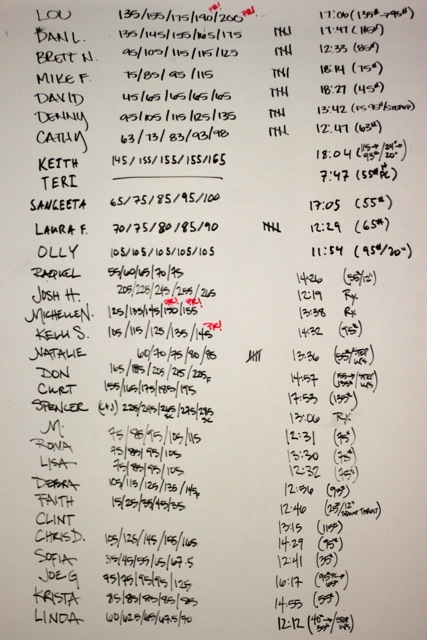 LOU 135/155/175/190/200 PR! PR! 17:06 (135#→95#)
DAN L. 135/145/155/165/175 17:47 (115#)
BRETT N. 95/105/115/115/125 12:33 (85#)
MIKE F. 75/85/95/115 18:14 (75#)
DAVID 45/65/65/65/65 18:27 (45#)
DENNY 95/105/115/125/135 13:42
CATHY 63/73/83/93/98 12:47 (63#)
KEITH 145/155/155/155/165 18:04
TERI 7:47
SANGEETA 65/75/85/95/100 17:05 (55#)
LAURA F. 70/75/80/85/90 12:29 (65#)
OLLY 105/105/105/105/105 11:54 (95#/20")
RAQUEL 55/60/65/70/75 14:26 (55/12")
JOSH H. 205/225/245/255/265 12:19 Rx
MICHELLE N. 125/135/145/150/155 PR! PR! 13:38 Rx
KELLI S. 105/115/125/135/145 PR! 14:32 (75#)
NATALIE 60/70/75/80/85 13:36
DON 165/185/205/215/225F 14:57
CURT 155/165/175/185/195 17:53 (135#)
SPENCER (C+J) 13:06 Rx
M. 75/85/95/105/115 12:31 (75#)
RONA 75/85/95/105 13:30 (75#)
LISA 75/85/95/105 12:32 (75#)
DEBRA 105/115/125/135/145F 12:56 (95#)
FAITH 15/25/35/45/35 12:46
CLINT 13:15 (115#)
CHRIS D. 105/125/145/155/165 14:29 (95#)
SOFIA 35/45/55/65/67.5 12:41 (35#)
JOE G 75/75/95/95/125 16:17
KRISTA 85/85/85/85/85 14:55 (55#)
LINDA 12:12